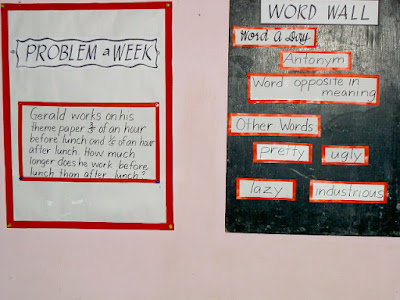 PROBLEM a WEEK
Gerald works on his
theme paper of an hour
before lunch and of an hour
after lunch. How much
longer does he work before
lunch than after lunch?
WORD WALL
Word A Day
Antonym
Word opposite in
meaning
Other Words
pretty
ugly
lazy
industrious